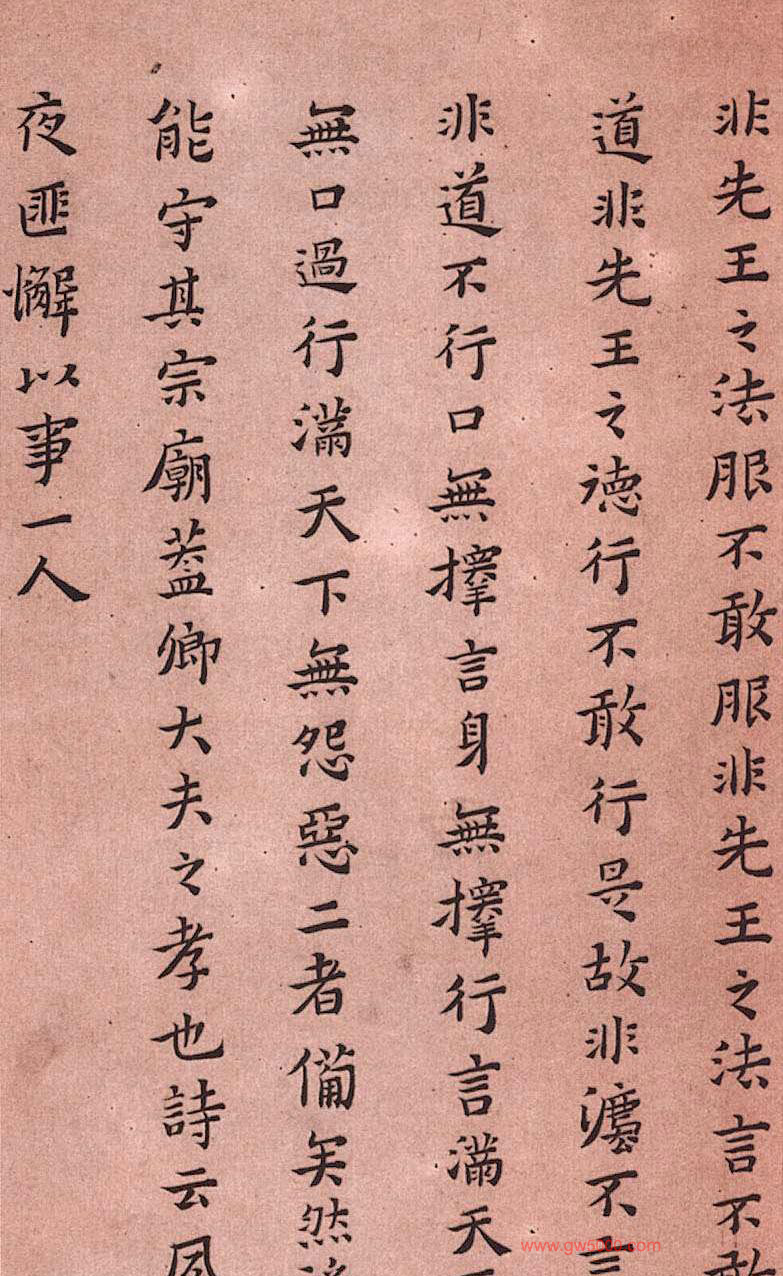 非先王之法服不敢服非先王之法言不敢
道非先王之德行不敢行是故非灋不言
非道不行口無擇言身無擇行言滿天下
無口過行滿天下無怨惡三者備矣然後
能守其宗廟蓋卿大夫之孝也詩云夙
夜匪懈以事一人
www.gw5000.com